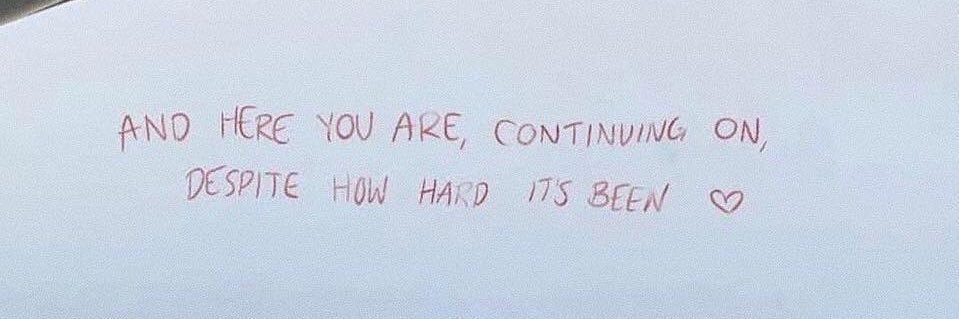 AND HERE YOU ARE, CONTINUING ON,
DESPITE HOW HARD IT'S BEEN ♡